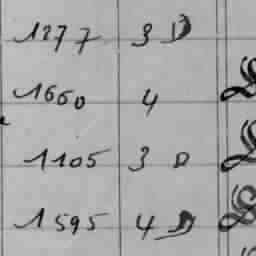 1277 3 D
1660 4
1105 3 D
1595 4 D